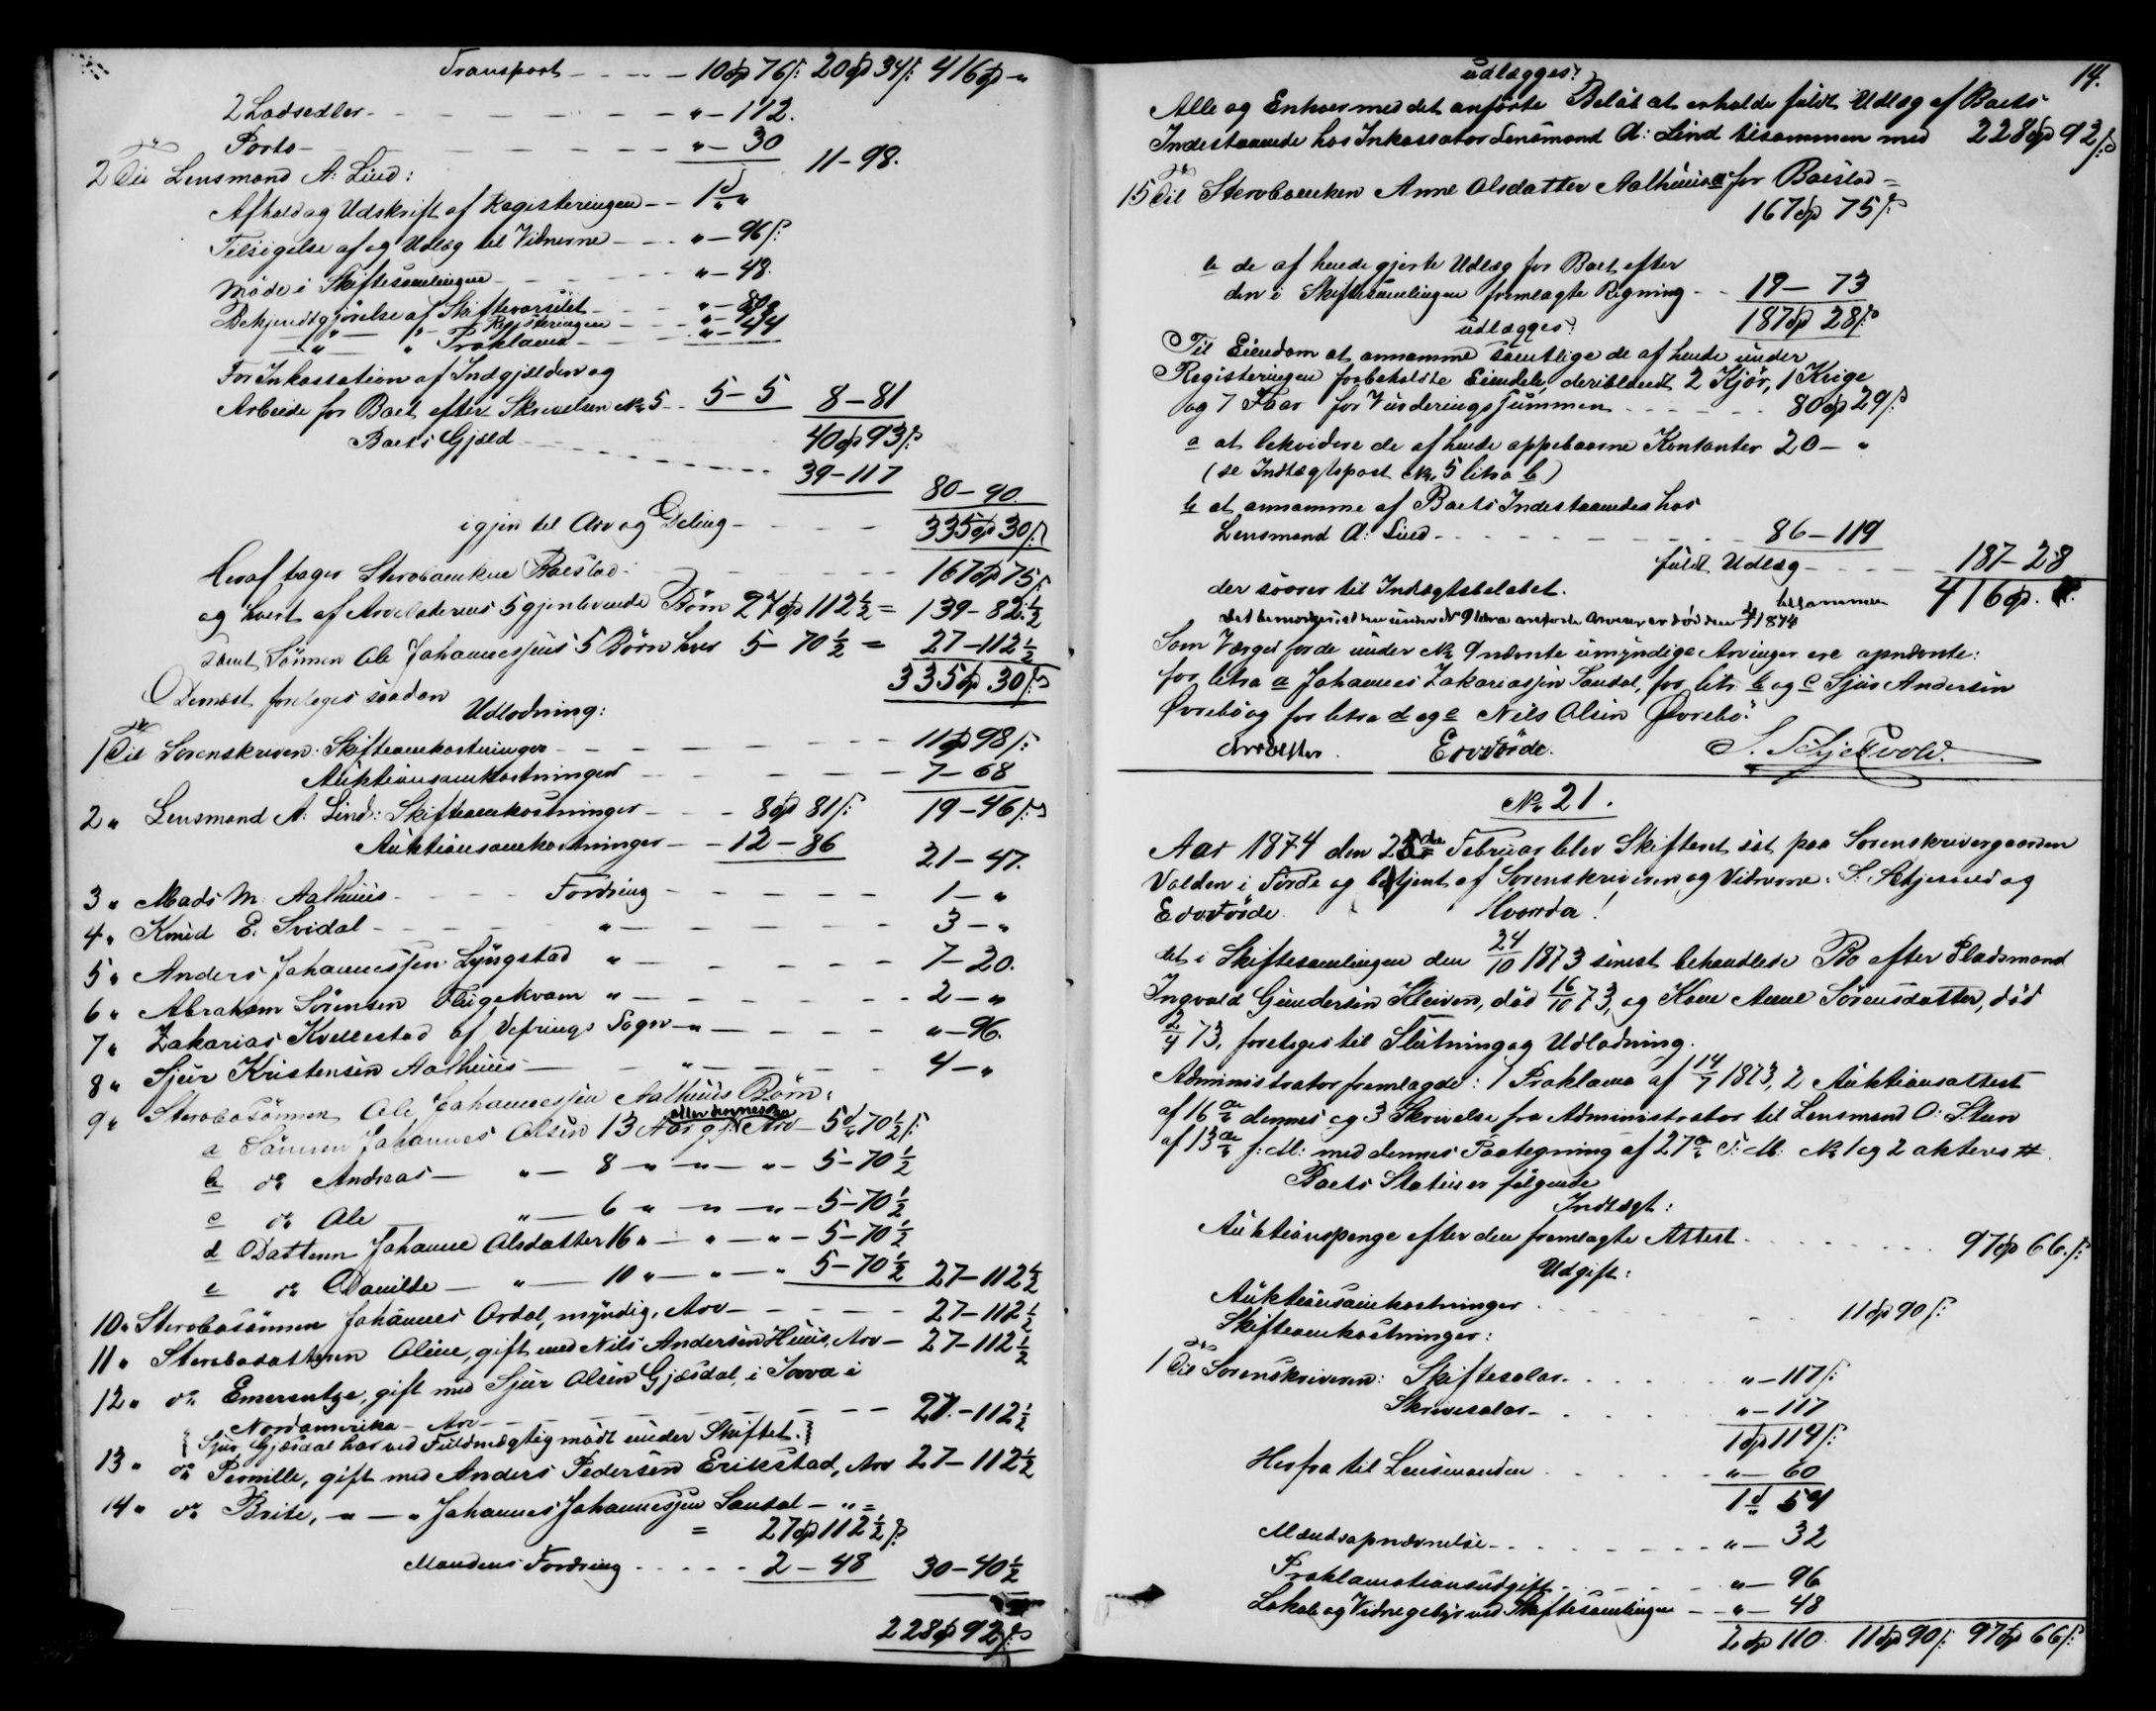 Transport - - - - 10 Spd 76 ß: 20 Spd 34 ß: 416 Spd - "
2 Lodsedler - - - - - - - " - 112.
Porto - - - - - - - " - 30 11 - 98.
2de Til Lensmand A: Lind:
Afhold og Udskrift af Registeringen - - 1 " "
Tilsigelse af og Udlæg til Vidnerne - - - " - 96 ß:
Møde i Skiftesamlingen - - - - " - 48.
Bekjendtgjørelse af Skiftevarselet - - - " - 80
- " - " - Registeringen - - -
- " - " Proklama - - - " - 44
For Inkassation af Indgjælden og
Arbeide for Boet efter Skrivelsen No 5 - - 5 - 5 8 - 81
40 Spd 93 ß
Boets Gjæld - - - - - - 39 - 117 80 - 90.
igjen til Arv og Deling - - - - 335 Spd 30 ß
Heraf tager Stervboenken Boeslod - - - - 167 Spd 75 ß
og hvert af Arveladerens 5 gjenlevende Børn 27 Spd 112 1/2 = 139 - 82 1/2
samt Sønnen Ole Johannessens 5 Børn hver 5 - 70 1/2 = 27 - 112 1/2
335 Spd 30 ß
Dernæst foretoges saadan
Udlodning:
1 Til Sorenskriveren: Skifteomkostninger - - - - - 11 Spd 98 ß:
Auktionsomkostninger - - - - - 7 - 68
19 - 46 ß
2 " Lensmand A: Lind: Skifteomkostninger - - - 8 Spd 81 ß:
Auktionsomkostninger - - 12 - 86 21 - 47.
3 " Mads M. Aalhuus - - Fordring - - - - - 1 - "
4 " Knud E. Svidal - - - - " - - - - - 3 - "
5 " Anders Johannessen Lyngstad " - - - - - 7 - 20.
6 " Abraham Sørensen Flugekvam " - - - - - 2 - "
7 " Zakarias Kvellestad af Vefrings Sogn - " - - - - " - 96.
8 " Sjur Kristensen Aalhuus - - " - - - 4 - "
9 " Stervbosønnen Ole Johannessen Aalhuus Børn:
a Sønnen Johannes Olsen 13 Aar gl. Arv - 5 70 1/2 ß:
b do Andreas - " - 8 " - " - " - 5 - 70 1/2
c do Ole " - 6 " - " - " - 5 - 70 1/2
d Datteren Johanne Olsdatter 16 " - " - " - 5 - 70 1/2
e do Danilde - " - 10 " - " - " 5 - 70 1/2 27 - 112 1/2
10 " Stervbosønnen Johannes Ordal, myndig, Arv - - - - - 27 - 112 1/2
11 " Stervbodatteren Oline, gift med Nils Andersen Huus, Arv - 27 - 112 1/2
12 " do Emerentze, gift med Sjur Olsen Gjesdal, i Iowa i
Nordamerika - Arv - - - - - - - 27. - 112 1/2
{Sjur Gjesdal har ved Fuldmægtig mødt under Skiftet.}
13 " do Pernille, gift med Anders Pedersen Erikstad, Arv 27 - 112 1/2
14 " do Brite, - " - " Johannes Johannessen Sandal - " =
= 27 Spd 112 1/2 ß
Mandens Fordring - - - - - 2 - 48 30 - 40 1/2
228 Spd 92 ß
14.
udlægges:
Alle og Enhver med det anførte Beløb at erholde fuldt Udlæg af Boets
Indestaaende hos Inkassator Lensmand A: Lind tilsammen med 228 Spd 92 ß
15 Til Stervboenken Anne Olsdatter Aalhuus a for Boeslod =
167 Spd 75 ß
b de af hende gjorte Udlæg for Boet efter
den i Skiftesamlingen fremlagte Regning - - 19 - 73
187 Spd 28 ß
udlægges:
Til Eiendom at annamme samtlige de af hende under
Registeringen forbeholdte Eiendele, deriblandt 2 Kjør, 1 Kvige
og 7 Faar for Vurderingssummen - - - - - 80 Spd 29 ß
a at likvidere de af hende oppebaarne Kontanter 20 - "
(se Indtægtspost No 5 litra b)
b at annamme af Boets Indestaaende hos
Lensmand A: Lind - - - - - 86 - 119
fuldt Udlæg - - - - 187 - 28
der svarer til Indtægtsbeløbet. tilsammen 416 Spd. ".
Det bemærkes, at den under No 9 litra anførte Arving er død den 1874
Som Værger for de under No 9 nævnte umyndige Arvinger ere opnævnte:
for litra a Johannes Zakariassen Sandal, for litr. b og c Sjur Andersen
Øvrebø og for litra d og e Nils Olsen Øvrebø.
E. Førde. S. Schjelvold.
No 21.
Aar 1874 den 25de Februar blev Skifteret sat paa Sorenskrivergaarden
Volden i Førde og betjent af Sorenskriveren og Vidnerne: S. og
E. Førde. Hvorda!
det i Skiftesamlingen den 24/10 1873 sidst behandlede Bo efter Pladsmand
Ingvald Gundersen Kleiven, død 16/10 73, og Kone Anne Sørensdatter, død
2/4 73, foretoges til Slutning og Udlodning.
Administrator fremlagde: 1 Proklama af 14/7 1873, 2 Auktionsattest
af 16de dennes og 3 Skrivelse fra Administrator til Lensmand O: Stun
af 13de f: M: med dennes Paategning af 27de s: M: No 1 og 2 akteres #.
Boets Status er følgende
Indtægt:
Auktionspenge efter den fremlagte Attest - - - - - 97 Spd 66 ß:
Udgift:
Auktionsomkostninger - - - - - 11 Spd 90 ß:
Skifteomkostninger:
1 Til Sorenskriveren: Skiftesalær. - - - " - 117 ß:
Skrivesalær - - - " - 117
1 Spd 114 ß:
Herfra til Lensmanden - - - - " - 60
1 " 54
Mandsopnævnelse - - - - - " - 32
Proklamationsudgift - - - - " - 96
Lokale og Vidnegebyr ved Skiftesamlingen - - " - 48
2 Spd 110 11 Spd 90 ß: 97 Spd 66 ß: